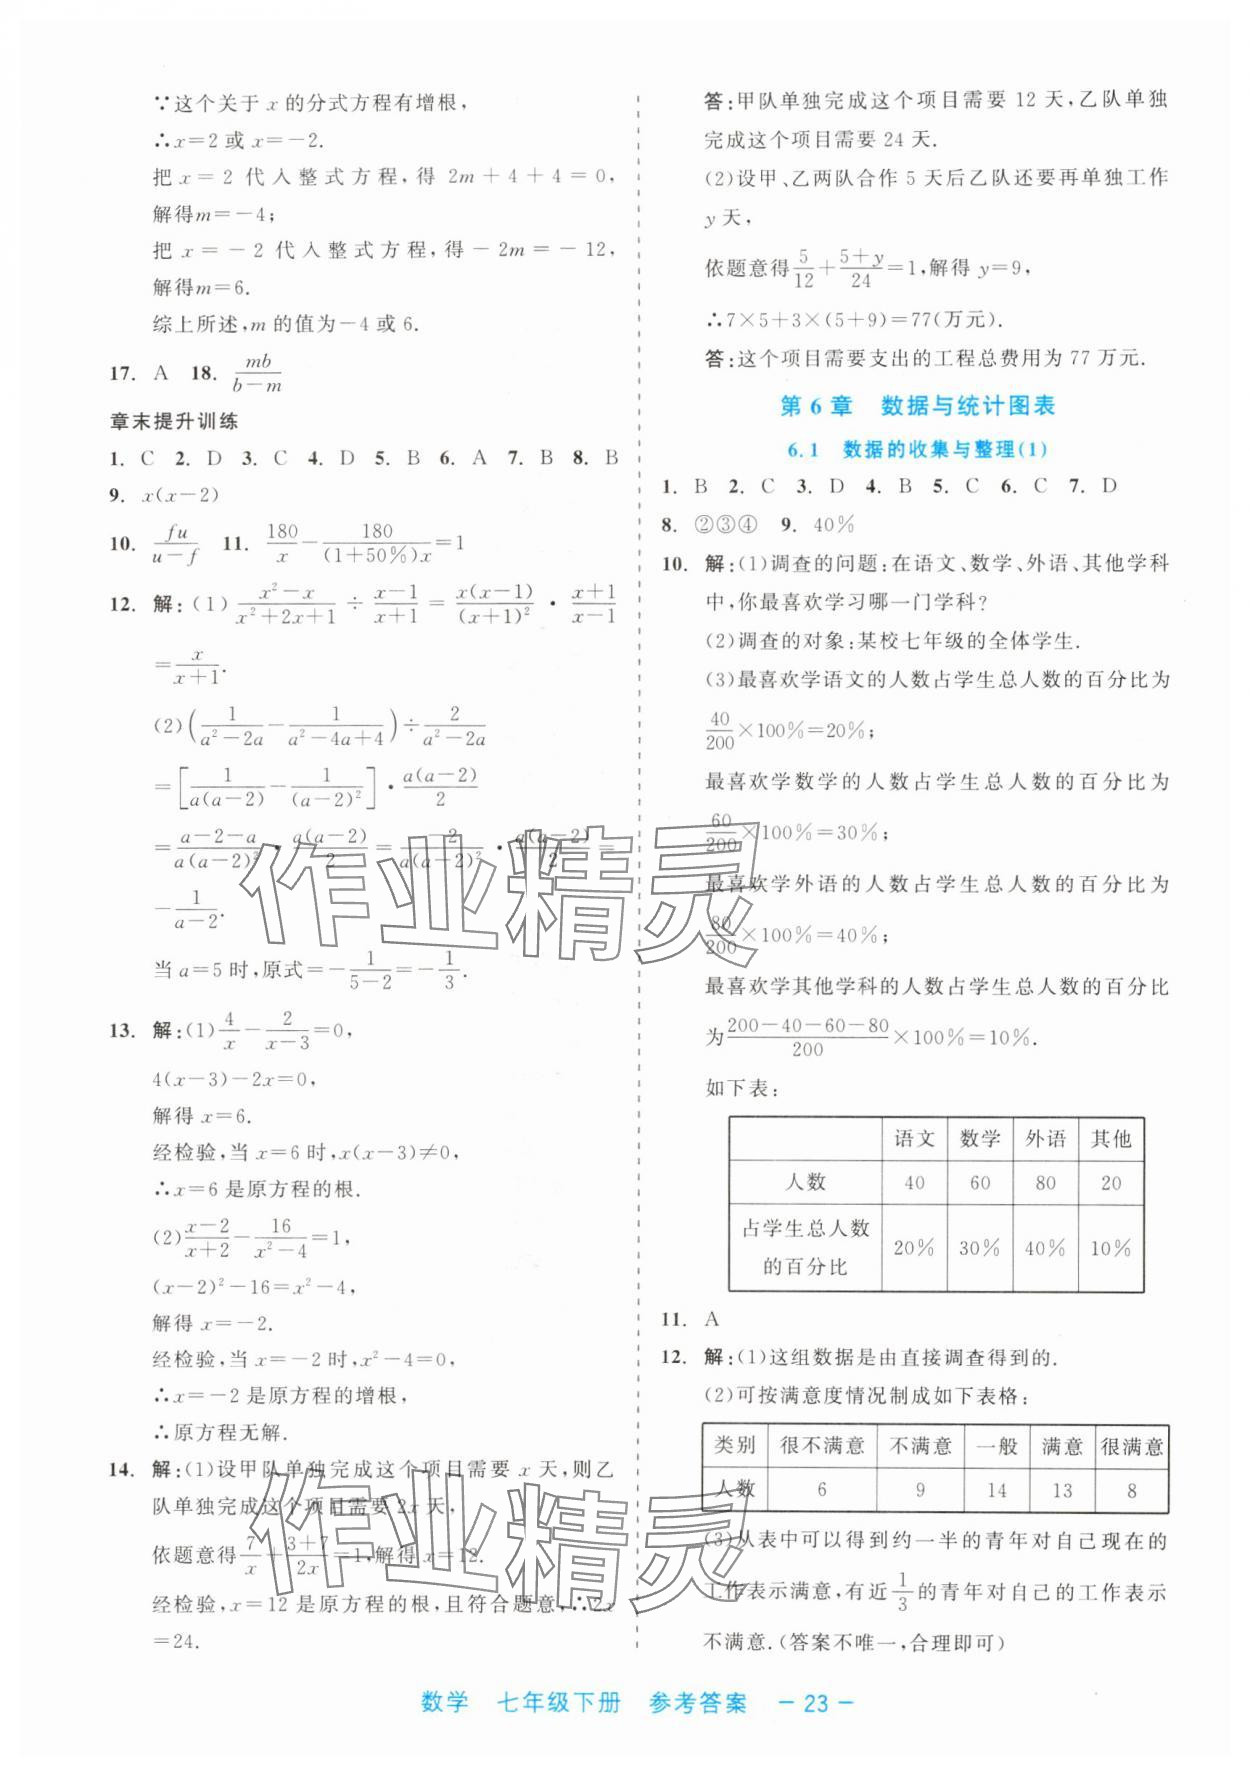 ∵这个关于 x 的分式方程有增根,
∴x=2 或 x=-2.
把 x=2 代入整式方程,得 2m+4+4=0,
解得m=-4;
把 x=-2 代入整式方程,得-2m=-12,
解得m=6.
综上所述,m 的值为-4 或 6.
17. A 18. mb/(b-m)
章末提升训练
1. C 2. D 3. C 4. D 5. B 6. A 7. B 8. B
9. x(x-2)
10. fu/(u-f) 11. 180/x - 180/((1+50%)x) =1
12. 解:(1) (x²-x)/(x²+2x+1) ÷ (x-1)/(x+1) = x(x-1)/(x+1)² · (x+1)/(x-1)
= x/(x+1).
(2)(1/(a²-2a) - 1/(a²-4a+4)) ÷ 2/(a²-2a)
=[1/(a(a-2)) - 1/(a-2)²] · a(a-2)/2
= (a-2-a)/(a(a-2)²) · a(a-2)/2 = -2/(a(a-2)²) · a(a-2)/2 =
-1/(a-2).
当 a=5 时,原式=-1/(5-2)=-1/3.
13. 解:(1) 4/x - 2/(x-3) =0,
4(x-3)-2x=0,
解得 x=6.
经检验,当 x=6 时,x(x-3)≠0,
∴x=6 是原方程的根.
(2) (x-2)/(x+2) - 16/(x²-4) =1,
(x-2)²-16=x²-4,
解得 x=-2.
经检验,当 x=-2 时,x²-4=0,
∴x=-2 是原方程的增根,
∴原方程无解.
14. 解:(1)设甲队单独完成这个项目需要 x 天,则乙
队单独完成这个项目需要 2x 天,
依题意得 7/x + (3+7)/2x =1,解得 x=12.
经检验,x=12 是原方程的根,且符合题意,∴2x
=24.
答:甲队单独完成这个项目需要 12 天,乙队单独
完成这个项目需要 24 天.
(2)设甲、乙两队合作 5 天后乙队还要再单独工作
y 天,
依题意得 5/12 + (5+y)/24 =1,解得 y=9,
∴7×5+3×(5+9)=77(万元).
答:这个项目需要支出的工程总费用为 77 万元.
第 6 章 数据与统计图表
6.1 数据的收集与整理(1)
1. B 2. C 3. D 4. B 5. C 6. C 7. D
8. ②③④ 9. 40%
10. 解:(1)调查的问题:在语文、数学、外语、其他学科
中,你最喜欢学习哪一门学科?
(2)调查的对象:某校七年级的全体学生.
(3)最喜欢学语文的人数占学生总人数的百分比为
40/200 ×100%=20%;
最喜欢学数学的人数占学生总人数的百分比为
60/200 ×100%=30%;
最喜欢学外语的人数占学生总人数的百分比为
80/200 ×100%=40%;
最喜欢学其他学科的人数占学生总人数的百分比
为 (200-40-60-80)/200 ×100%=10%.
如下表:
语文 数学 外语 其他
人数 40 60 80 20
占学生总人数
的百分比 20% 30% 40% 10%
11. A
12. 解:(1)这组数据是由直接调查得到的.
(2)可按满意度情况制成如下表格:
类别 很不满意 不满意 一般 满意 很满意
人数 6 9 14 13 8
(3)从表中可以得到约一半的青年对自己现在的
工作表示满意,有近 1/3 的青年对自己的工作表示
不满意.(答案不唯一,合理即可)
作业精灵
作业精灵
数学 七年级下册 参考答案 -23-